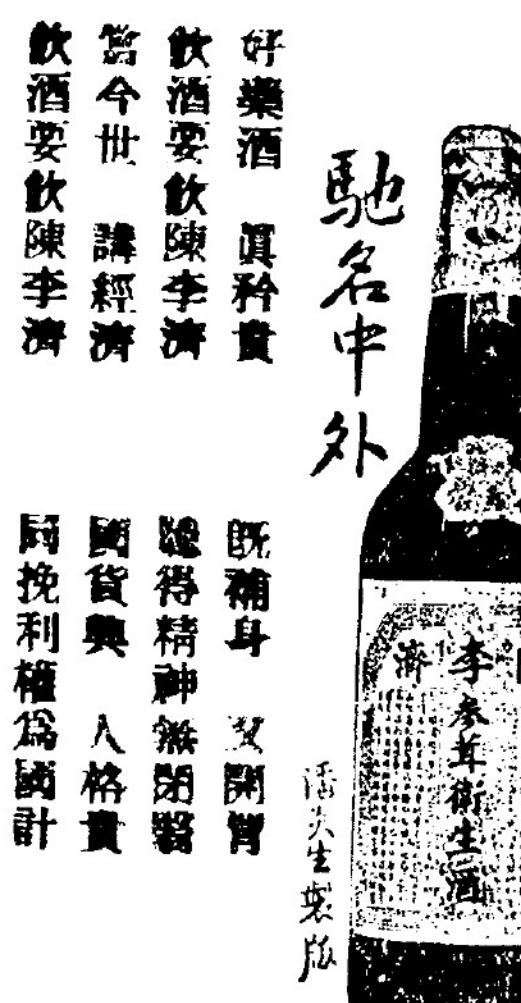 李參茸衛生酒
濟
馳名中外
潘炎生製版
好藥酒　眞矜貴
飲酒要飲陳李濟
當今世　講經濟
飲酒要飲陳李濟
既補身　又開胃
總得精神無閉翳
國貨興　人格貴
同挽利權爲國計